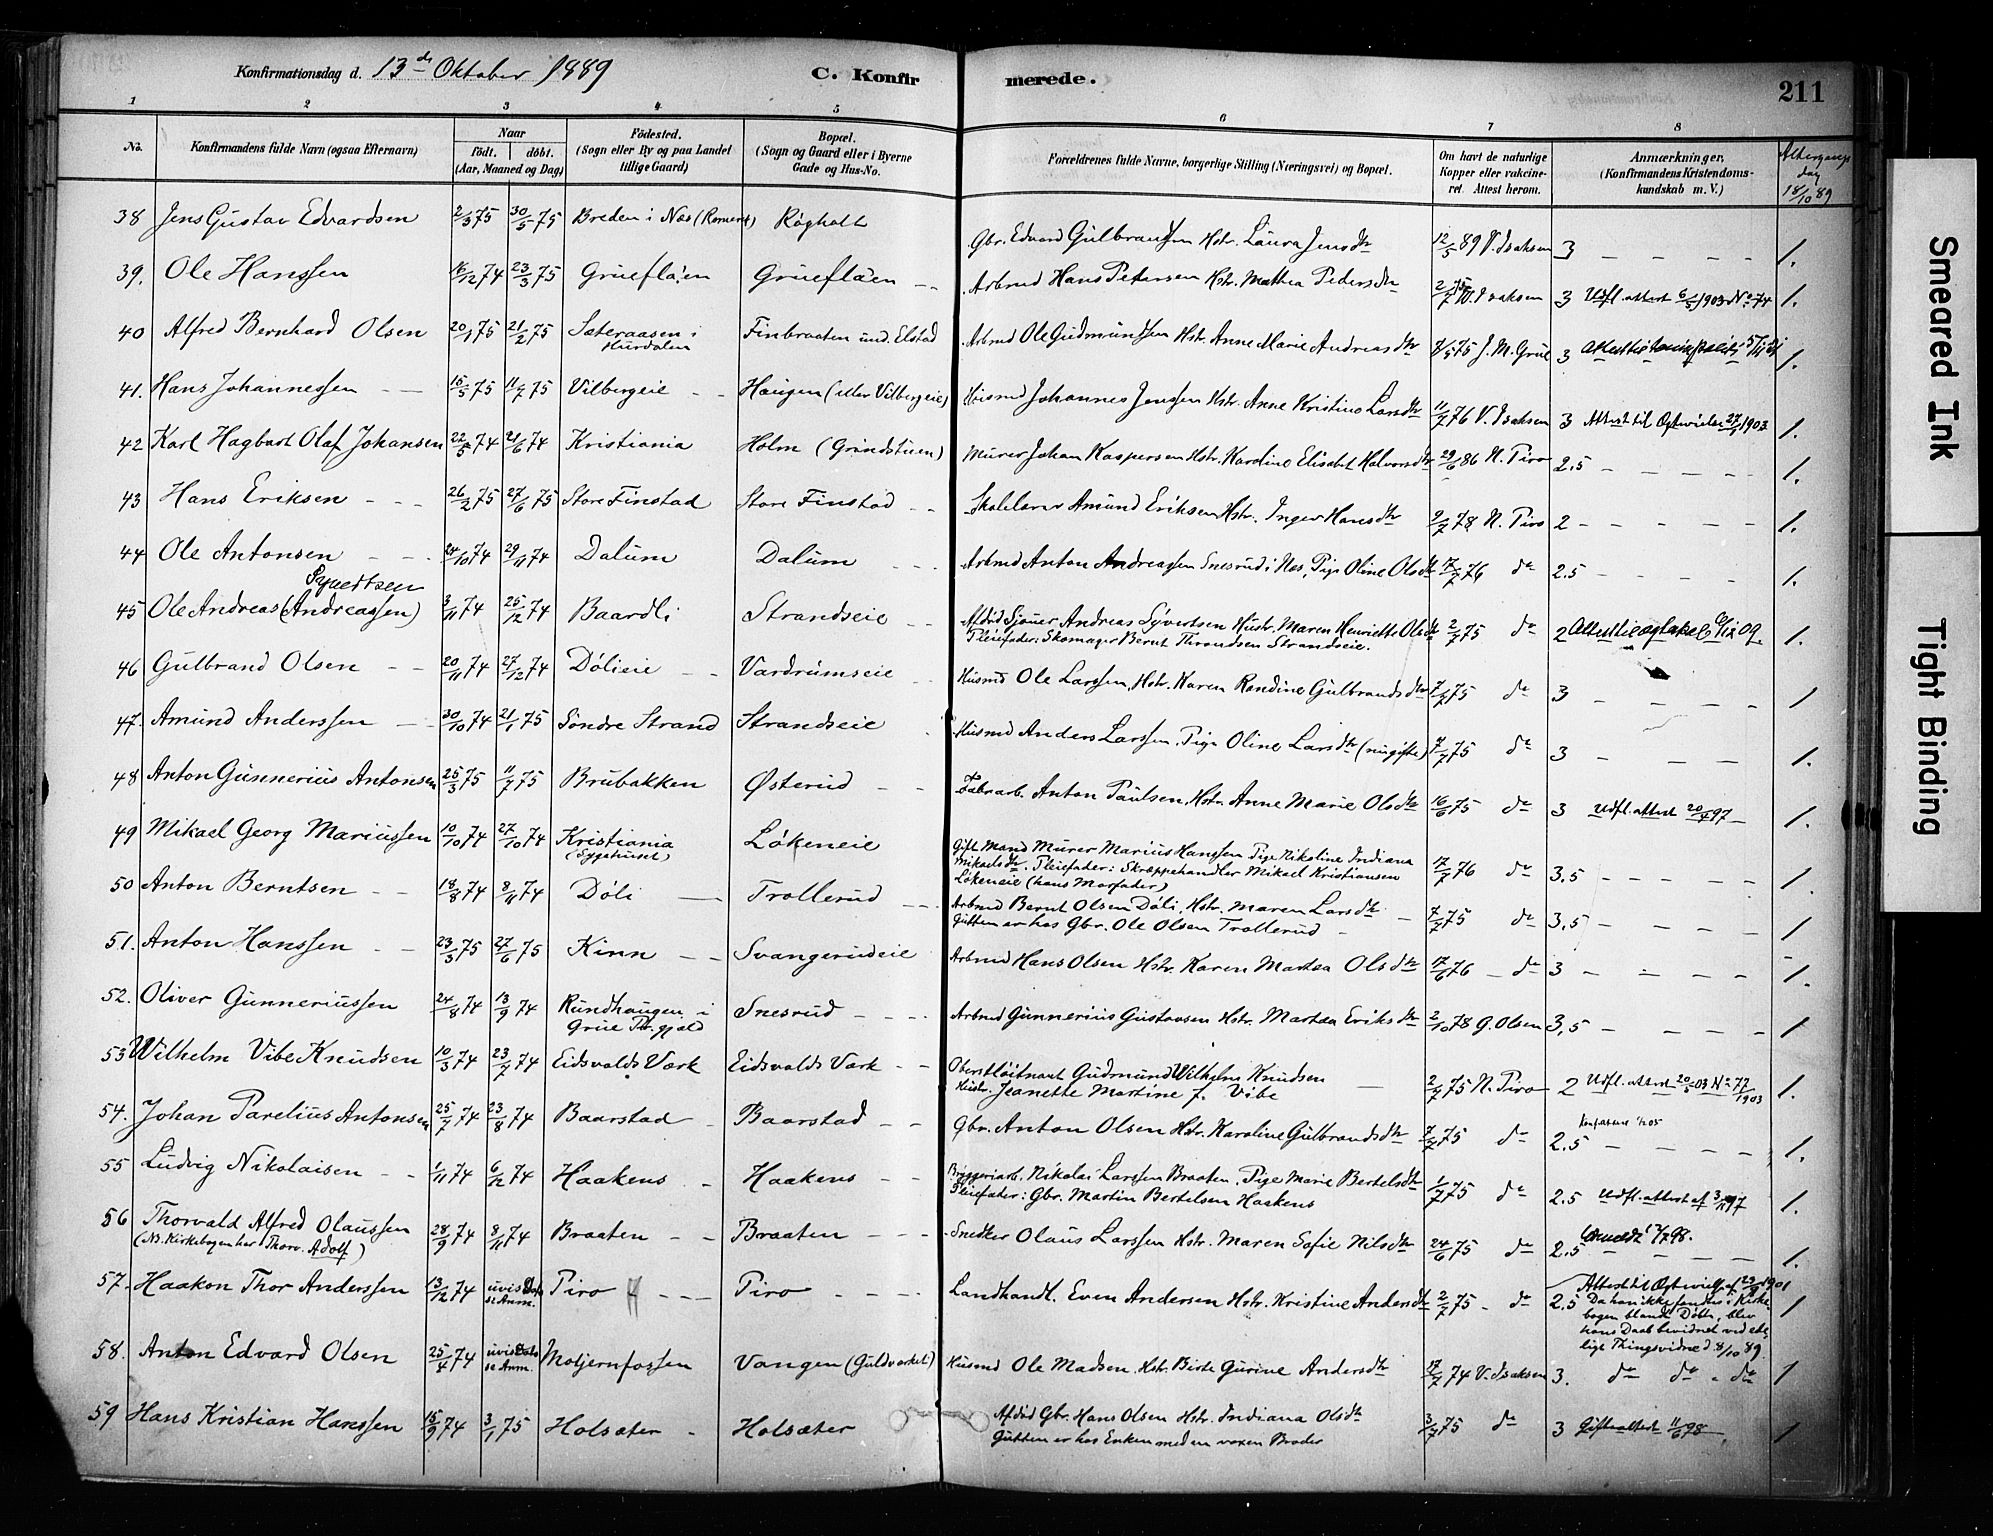 Konfirmationsdag d. 13de Oktober 1889 C. Konfirmerede. 211
1 2 3 4 5 6 7 8
No. Konfirmandens fulde Navn (ogsaa Efternavn) Naar födt. döbt. (Aar, Maaned og Dag) Födested. (Sogn eller By og paa Landet tillige Gaard) Bopæl. (Sogn og Gaard eller i Byerne Gade og Hus-No. Forældrenes fulde Navne, borgerlige Stilling (Næringsvei) og Bopæl. Om havt de naturlige Kopper eller vakcineret. Attest herom. Anmærkninger, (Konfirmandens Kristendomskundskab m. V.) Altergangsdag 18/10 89
38 Jens Gustav Edvardsen 2/3 75 30/5 75 Breden i Nes (Romerik) Røgholt Gbr. Edvard Gulbrandsen Hstr. Laura Jensdtr 12/5 89 V. Isaksen 3 1.
39. Ole Hanssen 16/12 74 23/3 75 Gruefläen Gruefläen Arbmd Hans Petersen Hstr. Mathea Pedersdtr 2/7 75 V. Isaksen 3 Udfl. attest 6/5 1903 No 74 1.
40 Alfred Bernhard Olsen 20/1 75 21/2 75 Sæteraasen i Hurdalen Finbraaten und. Elstad Arbmd Ole Gudmundsen Hstr. Anne Marie Andreasdtr 7/5 75 J. M. Grue 3 1.
41. Hans Johannessen 15/5 75 11/7 75 Vilbergeie Haugen (eller Vilbergeie) Husmd Johannes Jenssen Hstr. Anne Kristine Larsdtr 11/7 76 V. Isaksen 3 Attest til Ægtevielse 27/1 1903 1.
42 Karl Hagbart Olaf Johansen 22/5 74 21/6 74 Kristiania Holm (Grindstuen) Murer Johan Kaspersen Hstr. Karoline Elisabet Halvorsdtr 29/6 86 N. Piro 2.5 1.
43 Hans Eriksen 26/2 75 27/6 75 Store Finstad Store Finstad Skolelærer Amund Eriksen Hstr. Inger Hansdtr 9/7 78 N. Piro 2 1.
44 Ole Antonsen 24/10 74 29/11 74 Dalum Dalum Arbmd Anton Andreassen Snesrud i Nes, Pige Oline Olsdtr 17/7 76 do 2.5 1.
Syvertsen
45 Ole Andreas (Andreassen) 3/11 74 25/12 74 Baardli Strandseie Afdöd Sjøuer Andreas Syvertsen Hustr. Maren Henriette Olsdtr 2/7 75 do 2 1.
Pleiefader: Skomager Bernt Throndsen Strandseie.
46 Gulbrand Olsen 20/11 74 27/12 74 Dölieie Vardrumseie Husmd Ole Larssen, Hstr. Karen Randine Gulbrandsdtr 7/7 75 do 3 1
47. Amund Anderssen 30/10 74 21/1 75 Söndre Strand Strandseie Husmd Anders Larssen, Pige Oline Larsdtr (nu gifte) 7/7 75 do 3 1.
48 Anton Gunnerius Antonsen 25/3 75 11/7 75 Brubakken Østerud Fabrarb. Anton Paulsen, Hstr. Anne Marie Olsdtr 16/6 75 do 3 Udfl. attest 20/4 97 1.
49 Mikael Georg Mariussen 10/10 74 27/10 74 Kristiania (Sygehuset) Lökeneie Gift Mand Murer Marius Hanssen Pige Nikoline Indiana
Mikaelsdtr. Pleiefader: Skræppehandler Mikael Kristiansen 17/7 76 do 3.5 1
Lökeneie (hans Morfader)
50 Anton Berntsen 18/8 74 8/11 74 Döli Trollerud Arbmd Bernt Olsen Döli, Hstr. Maren Larsdtr 7/7 75 do 3.5 1
Gutten er hos Gbr. Ole Olsen Trollerud
51. Anton Hanssen 23/3 75 27/6 75 Kinn Svangerudeie Arbmd Hans Olsen Hstr. Karen Martea Olsdtr 17/6 76 do 3 1.
52. Oliver Gunneriussen 24/8 74 13/9 74 Rundhaugen i Grue Pr.gjæld Snesrud Arbmd Gunnerius Gustavsen Hstr. Martea Eriksdtr 2/10 78 G. Olsen 3.5 1
53 Wilhelm Vibe Knudsen 10/3 74 23/7 74 Eidsvolds Værk Eidsvolds Værk Oberstlöitnant Gudmund Wilhelm Knudsen
Hustr. Jeanette Martine f. Vibe 2/7 75 N. Piro 2 Udfl. attest 20/5 03 No 77/1903 1.
54. Johan Parelius Antonsen 25/7 74 23/8 74 Baarstad Baarstad Gbr. Anton Olsen Hstr. Karoline Gulbrandsdtr 7/7 75 do 2.5 1.
55 Ludvig Nikolaisen 1/11 74 6/12 74 Haakens Haakens Bryggeriarb. Nikolai Larssen Braaten, Pige Marie Bertelsdtr 1/7 75 do 2.5 Udfl. attest af 3/11 97 1.
Pleiefader: Gbr. Martin Bertelsen Haakens
56 Thorvald Alfred Olaussen 28/9 74 8/11 74 Braaten Braaten Snedker Olaus Larssen Hstr. Maren Sofie Nilsdtr 24/6 75 do 2.5 1.
(NB. Kirkebogen har Thorv. Adolf)
57. Haakon Thor Anderssen 13/12 74 uvis Dato se Anm. Piro Piro Landhandl. Even Andersen Hstr. Kristine Andersdtr 2/7 75 do 2.5 Attest til Ægteviels af 23/9 1901
Da han ikke fandtes i Kirkebogen blandt Döbte, blev hans Daab bevidnet ved edelige Thingsvidne d. 8/10 89. 1
58. Anton Edvard Olsen 25/4 74 uvis Dato se Anm. Motjernfossen Vangen (Guldværket) Husmd Ole Madsen Hstr. Birte Gurine Andersdtr 17/7 74 V. Isaksen 3. do do do 1
59 Hans Kristian Hanssen 15/9 74 3/1 75 Holsæter Holsæter Afdöd Gbr. Hans Olsen Hstr. Indiana Olsdtr 3/7 75 do 3 Gifteattest 11/6 98 1
Gutten er hos Enken med en voxen Broder
Smeared Ink
Tight Binding